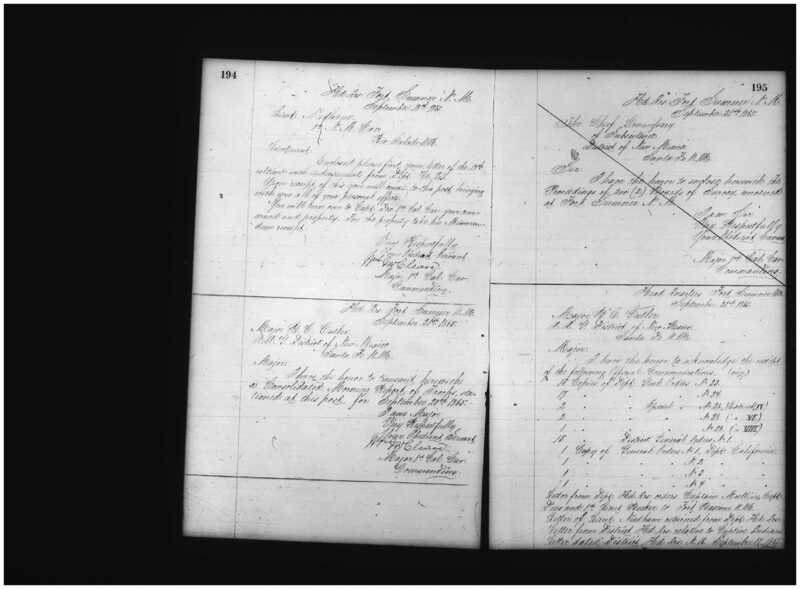 194
Hd. Qrs. Fort Sumner N.M.
September 1865
Lieut.
1st N.M. Cav.
Rio Salado N.M.
Lieutenant
Enclosed please find your letter of the
with endorsement from Dept.
Upon receipt of this you will come to this post bringing
with you all of your personal effects.
You will turn over to Capt. 1st Cal. Cav. your com-
mand and property. For the property take his Memoran-
dum receipt.
Very Respectfully
Your Obedient Servant
Major 1st Cal. Cav.
Commanding.
Hd. Qrs. Fort Sumner N.M.
September 1865.
Major W. C. Cutler
District of New Mexico
Santa Fe N.M.
Major:
I have the honor to transmit herewith
a Consolidated Morning Report of Troops, sta-
tioned at this post for September 20th 1865.
I am Major
Very Respectfully,
Your Obedient Servant
Major 1st Cal. Cav.
Commanding
195
Hd. Qrs. Fort Sumner N.M.
September 1865.
The Chief Commissary
of Subsistence
District of New Mexico
Santa Fe N.M.
Sir
I have the honor to enclose herewith the
Proceedings of two (2) Boards of Survey convened
at Fort Sumner N.M.
I am Sir
Very Respectfully
Your Obedient Servant
Major 1st Cal. Cav.
Commanding.
Head Quarters Fort Sumner N.M.
September 1865.
Major W. C. Cutler
A. A. G. District of New Mexico
Santa Fe N.M.
Major
I have the honor to acknowledge the receipt
of the following Official Communications.
Copies of Dept. Orders No. 23.
17 " " " " No. 24
2 " " Special " No.
2 " " " " No. 28 ( " VI)
1 " " " " No. ( " VIII)
15 " District General Orders No. 1.
1 Copy of General Orders No. 1, Dept. California.
1 " " " " No. 2 " "
1 " " " " No. 3 " "
1 " " " " No. 4 " "
Letter from Dept. Hd. Qrs. orders Captain
and 1st Lieut. to Fort Bascom N.M.
Letter of Lieut. returned from Dept. Hd. Qrs.
Letter from District Hd. Qrs. relative to Captive Indians
Letter dated District Hd. Qrs. N.M. September 1865